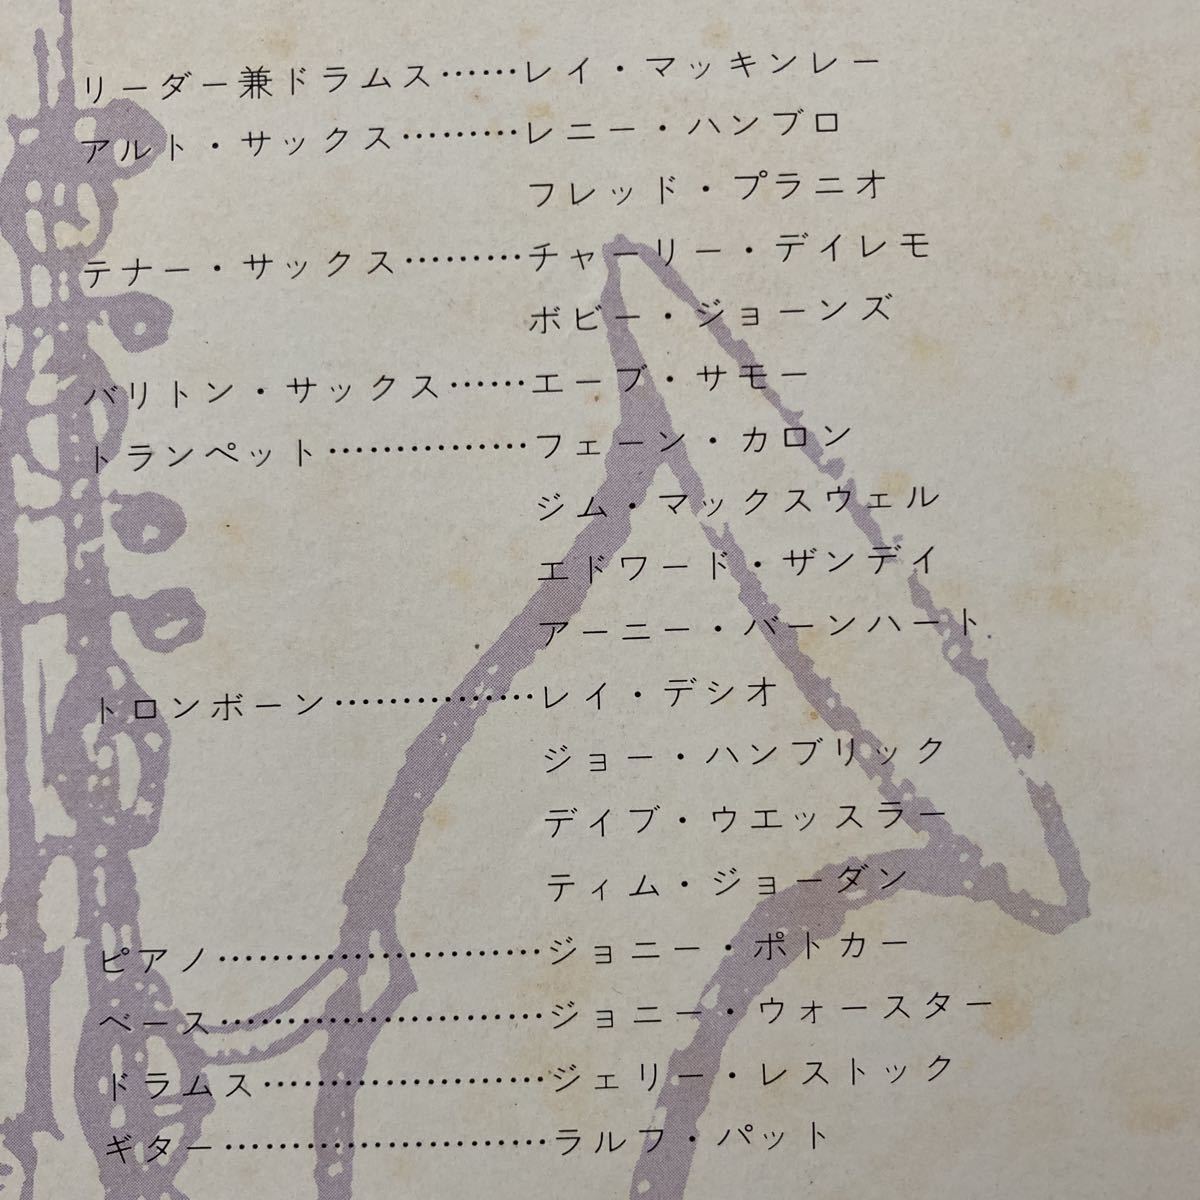 リーダー兼ドラムス……レイ・マッキンレー
アルト・サックス………レニー・ハンブロ
フレッド・プラニオ
テナー・サックス………チャーリー・デイレモ
ボビー・ジョーンズ
バリトン・サックス……エーブ・サモー
トランペット……………フェーン・カロン
ジム・マックスウェル
エドワード・ザンデイ
アーニー・バーンハート
トロンボーン……………レイ・デシオ
ジョー・ハンブリック
デイブ・ウエッスラー
ティム・ジョーダン
ピアノ……………………ジョニー・ポトカー
ベース……………………ジョニー・ウォースター
ドラムス…………………ジェリー・レストック
ギター……………………ラルフ・パット